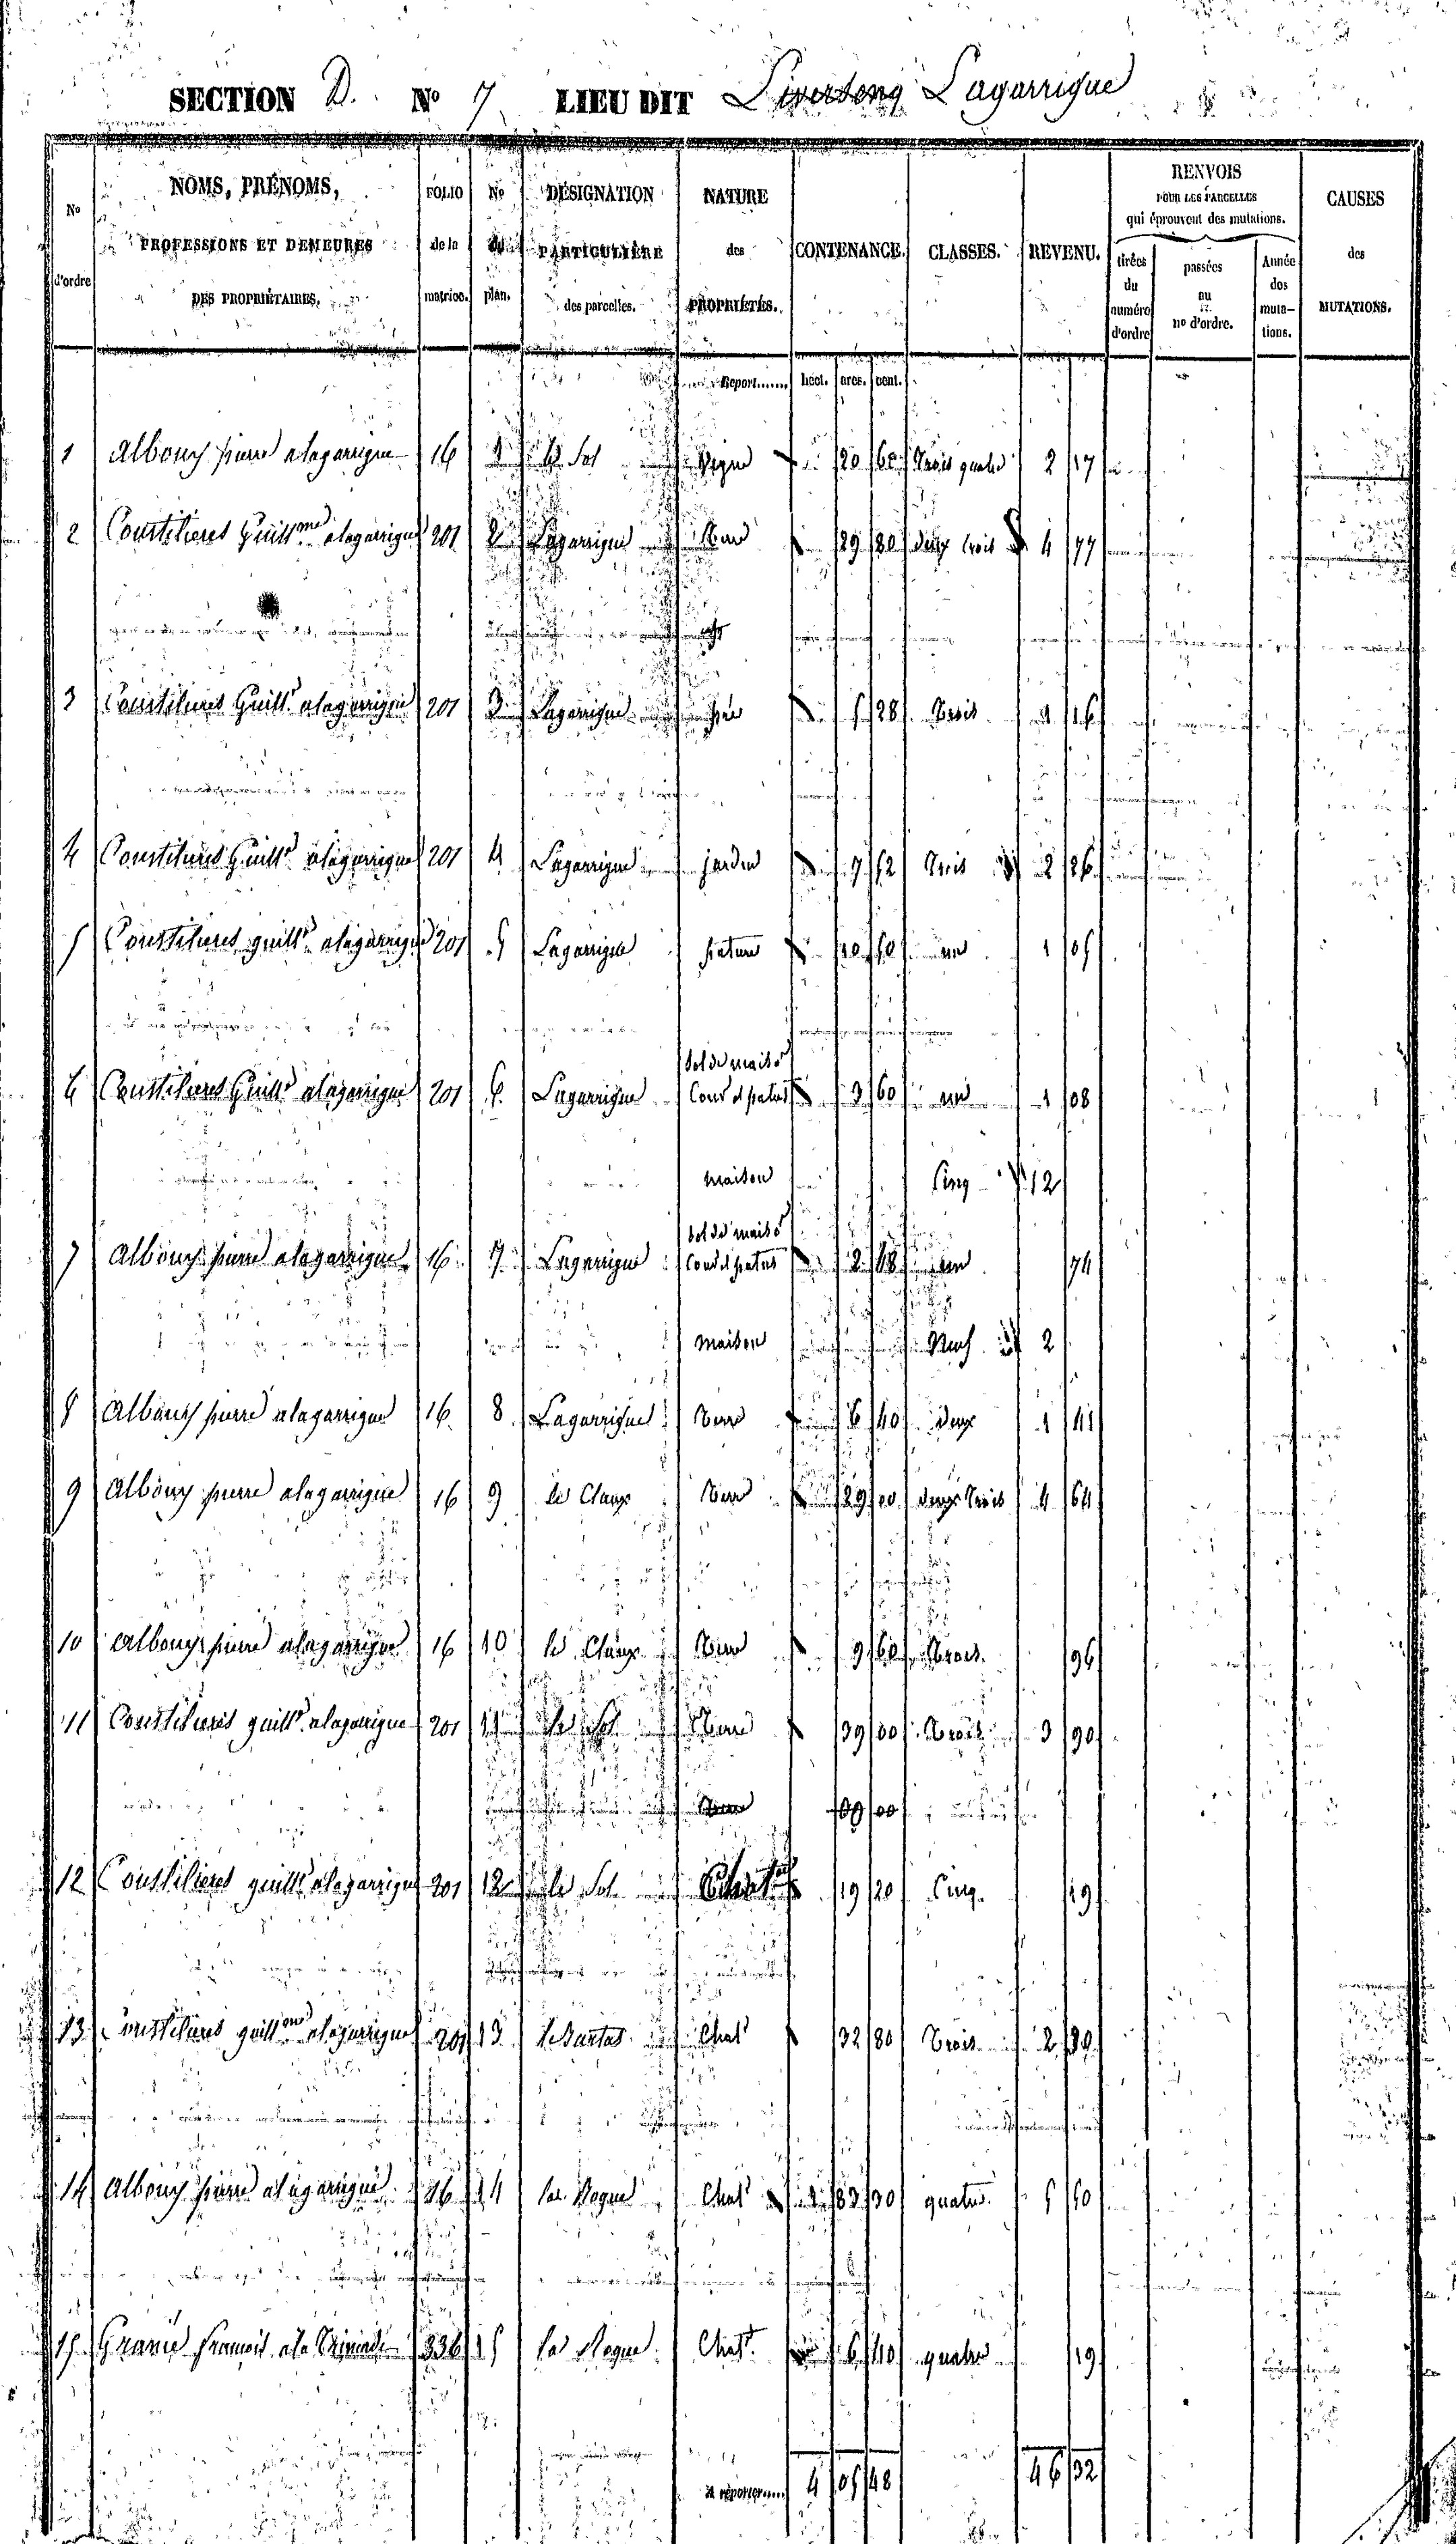 SECTION D. No 7 LIEU DIT Lagarrigue
No d'ordre
NOMS, PRÉNOMS, PROFESSIONS ET DEMEURES DES PROPRIÉTAIRES.
FOLIO de la matrice.
No du plan.
DÉSIGNATION PARTICULIÈRE des parcelles.
NATURE des PROPRIÉTÉS.
CONTENANCE.
CLASSES.
REVENU.
RENVOIS POUR LES PARCELLES qui éprouvent des mutations.
tirées du numéro d'ordre
passées au no d'ordre.
Année des muta-tions.
CAUSES des MUTATIONS.
Report...... hect. ares. cent.
1 Albouy pierre a lagarrigue 16 1 le Sol Vigne 20 60 trois quatre 2 17
2 Coustilieres Guill.me a lagarrigue 201 2 Lagarrigue terre 29 80 deux trois 4 77
3 Coustilieres Guill.e a lagarrigue 201 3 Lagarrigue pré 5 28 trois 1 16
4 Coustilieres Guill.e a lagarrigue 201 4 Lagarrigue jardin 7 52 trois 2 26
5 Coustilieres guill.e a lagarrigue 201 5 Lagarrigue pature 10 50 un 1 05
sol de maison
6 Coustilieres Guill.e a lagarrigue 201 6 Lagarrigue Cour et patus 3 60 un 1 08
maison Cinq 12
sol de maison
7 Albouy pierre a lagarrigue 16 7 Lagarrigue Cour et patus 2 48 un 74
maison Neuf 2
8 Albouy pierre a lagarrigue 16 8 Lagarrigue terre 6 40 deux 1 41
9 Albouy pierre a lagarrigue 16 9 le Claux terre 29 00 deux trois 4 64
10 Albouy pierre a lagarrigue 16 10 le Claux terre 9 60 trois 96
11 Coustilieres guill.e a lagarrigue 201 11 le Sol terre 39 00 trois 3 90
12 Coustilieres guill.e a lagarrigue 201 12 le Sol 19 20 Cinq 19
13 Coustilieres guill.me a lagarrigue 201 13 le Bartas Chat 32 80 trois 2 30
14 Albouy pierre a lagarrigue 16 14 la Rogue Chat 1 83 30 quatre 5 50
15 François a la 336 15 la Rogue Chat 6 40 quatre 19
à reporter..... 4 05 48 46 32